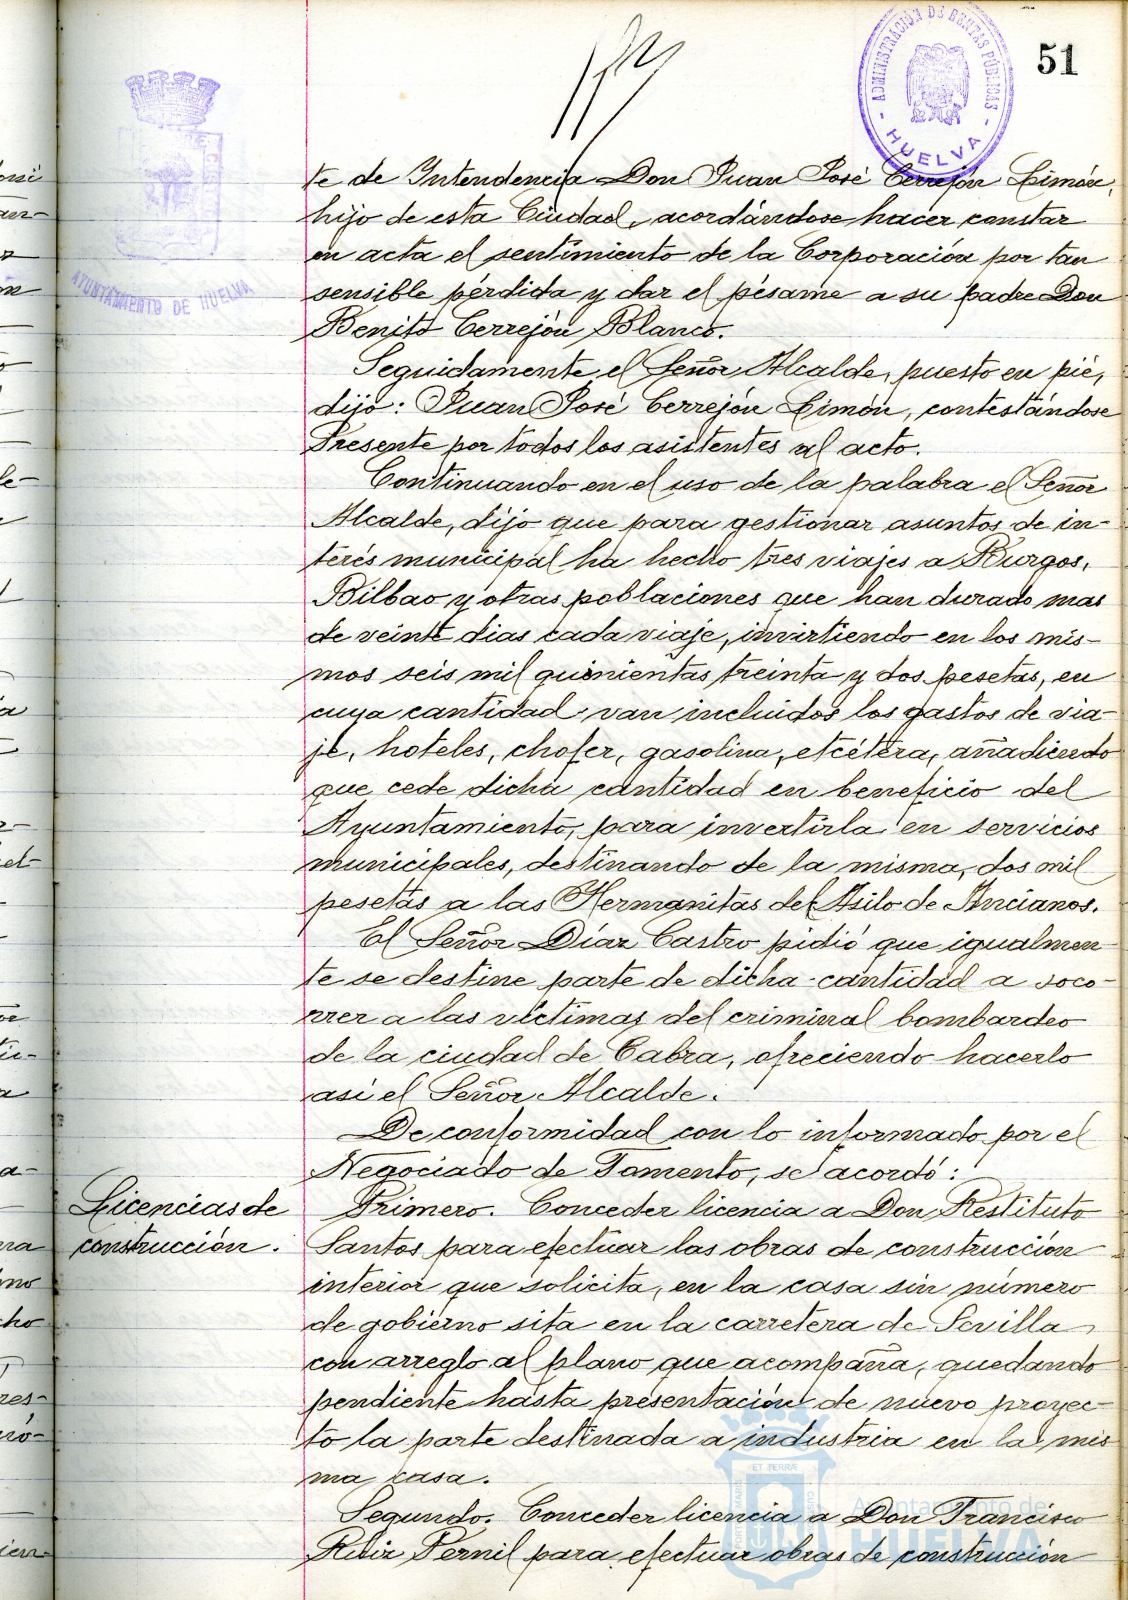 51
ADMINISTRACIÓN DE RENTAS PÚBLICAS
- HUELVA -
AYUNTAMIENTO DE HUELVA
te de Intendencia Don Juan José Cerrejón Limón,
hijo de esta Ciudad, acordándose hacer constar
en acta el sentimiento de la Corporación por tan
sensible pérdida y dar el pésame a su padre Don
Benito Cerrejón Blanco.
Seguidamente el Señor Alcalde, puesto en pié,
dijo: Juan José Cerrejón Limón, contestándose
Presente por todos los asistentes al acto.
Continuando en el uso de la palabra el Señor
Alcalde, dijo que para gestionar asuntos de in-
terés municipal ha hecho tres viajes a Burgos,
Bilbao y otras poblaciones que han durado mas
de veinte dias cada viaje, invirtiendo en los mis-
mos seis mil quinientas treinta y dos pesetas, en
cuya cantidad van incluidos los gastos de via-
je, hoteles, chofer, gasolina, etcétera, añadiendo
que cede dicha cantidad en beneficio del
Ayuntamiento, para invertirla en servicios
municipales, destinando de la misma, dos mil
pesetas a las Hermanitas del Asilo de Ancianos.
El Señor Díaz Castro pidió que igualmen-
te se destine parte de dicha cantidad a soco-
rrer a las víctimas del criminal bombardeo
de la ciudad de Cabra, ofreciendo hacerlo
asi el Señor Alcalde.
De conformidad con lo informado por el
Negociado de Fomento, se acordó:
Licencias de
construcción.
Primero. Conceder licencia a Don Restituto
Santos para efectuar las obras de construcción
interior que solicita, en la casa sin número
de gobierno sita en la carretera de Sevilla,
con arreglo al plano que acompaña, quedando
pendiente hasta presentación de nuevo proyec-
to la parte destinada a industria en la mis
ma casa.
Segundo. Conceder licencia a Don Francisco
Ruiz Pernil para efectuar obras de construcción
ET TERRÆ
Ayuntamiento de
HUELVA